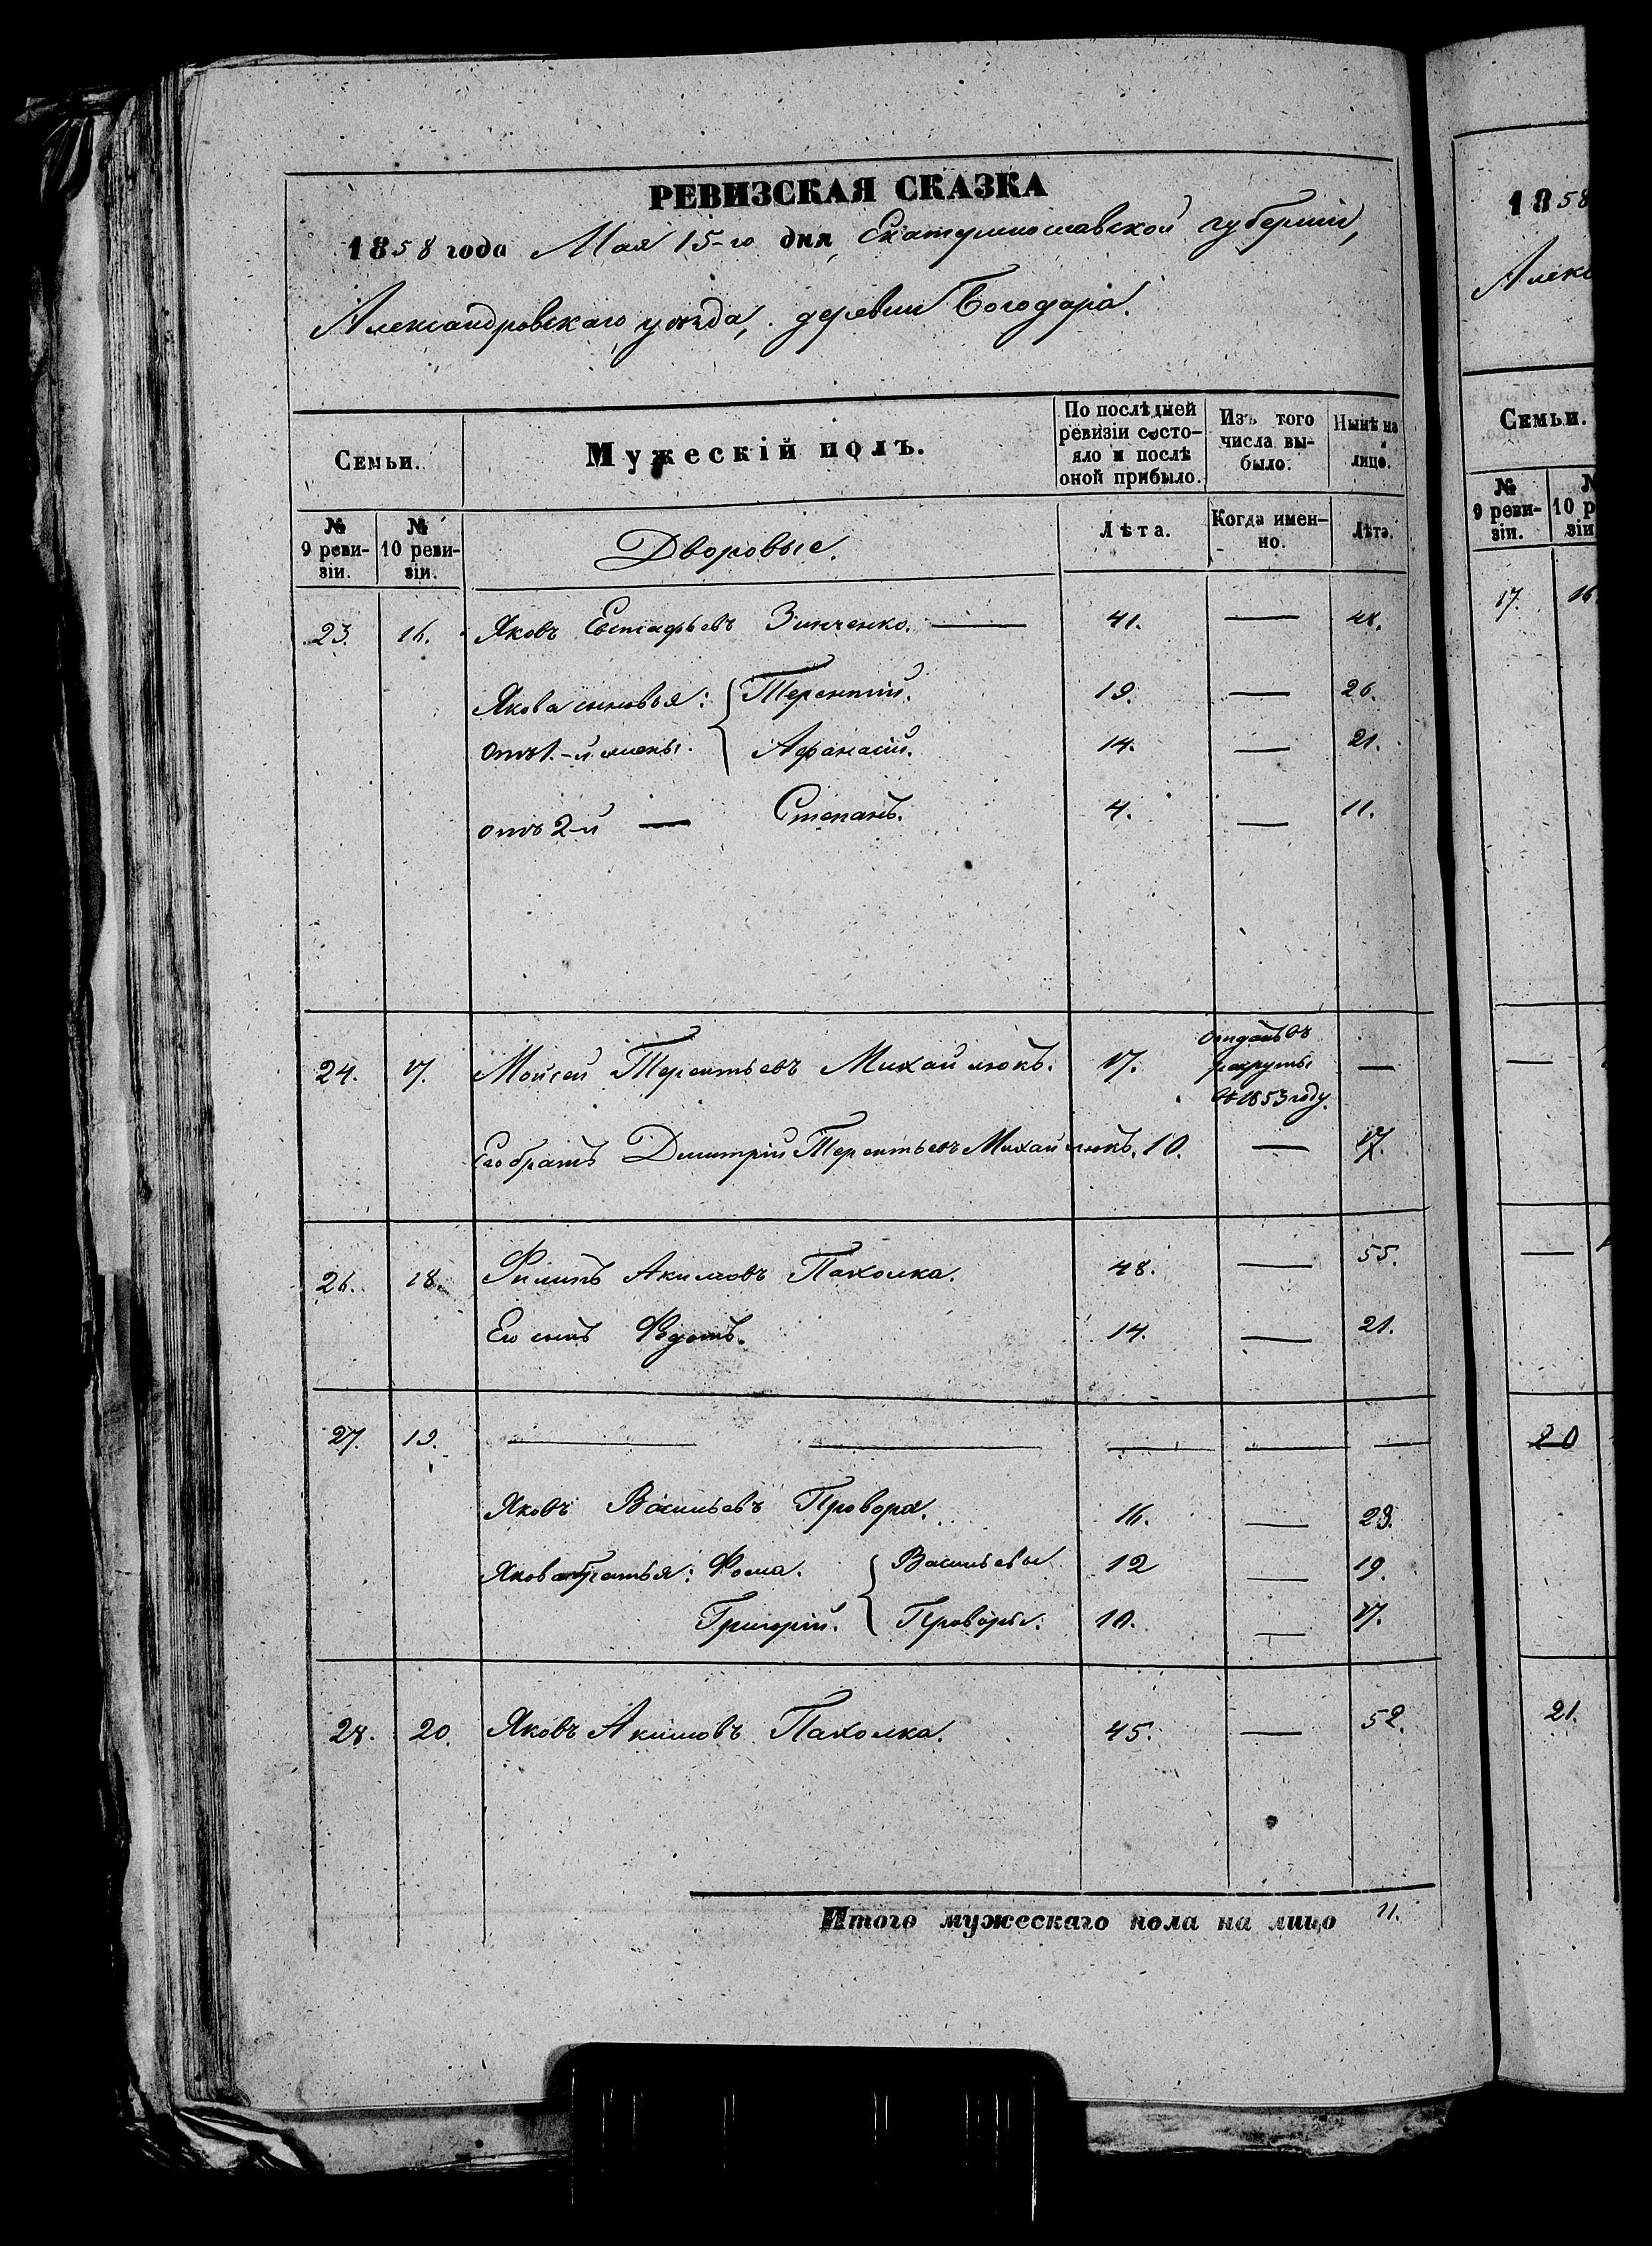 РЕВИЗСКАЯ СКАЗКА
1858 года Мая 15-го дня, Екатеринославской губерніи,
Александровскаго уѣзда, деревни Богодара.
Семьи.
Мужескій полъ.
По послѣдней ревизіи состо-
яло и послѣ
оной прибыло.
Изъ того
числа вы-
было.
Нынѣ на
лицо.
№
9 реви-
зіи.
№
10 реви-
зіи.
Дворовые.
Лѣта.
Когда имен-
но.
Лѣта.
23. 16. Яковъ Евстафьевъ Зинченко. — 41. — 48.
Якова сыновья: { Терентій. 19. — 26.
отъ 1-й жены. { Афанасій. 14. — 21.
отъ 2-й — Степанъ. 4. — 11.
24. 17. Мойсей Терентьевъ Михайлюкъ. 17. Отданъ въ
рекруты
въ 1853 году. —
Его братъ Димитрій Терентьевъ Михайлюкъ. 10. — 17.
26. 18. Филипъ Акимовъ Пахолка. 48. — 55.
Его сынъ Федотъ. 14. — 21.
27. 19. — — — — —
Яковъ Васильевъ Провора. 16. — 23.
Якова братья: Фома. { Васильевы 12 — 19.
Григорій. { Проворы. 10. — 17.
28. 20. Яковъ Акимовъ Пахолка. 45. — 52.
Итого мужескаго пола на лицо 11.
1858
Алекс
Семьи.
№
9 реви-
зіи.
10 р
зіи
17. 16
20
21.